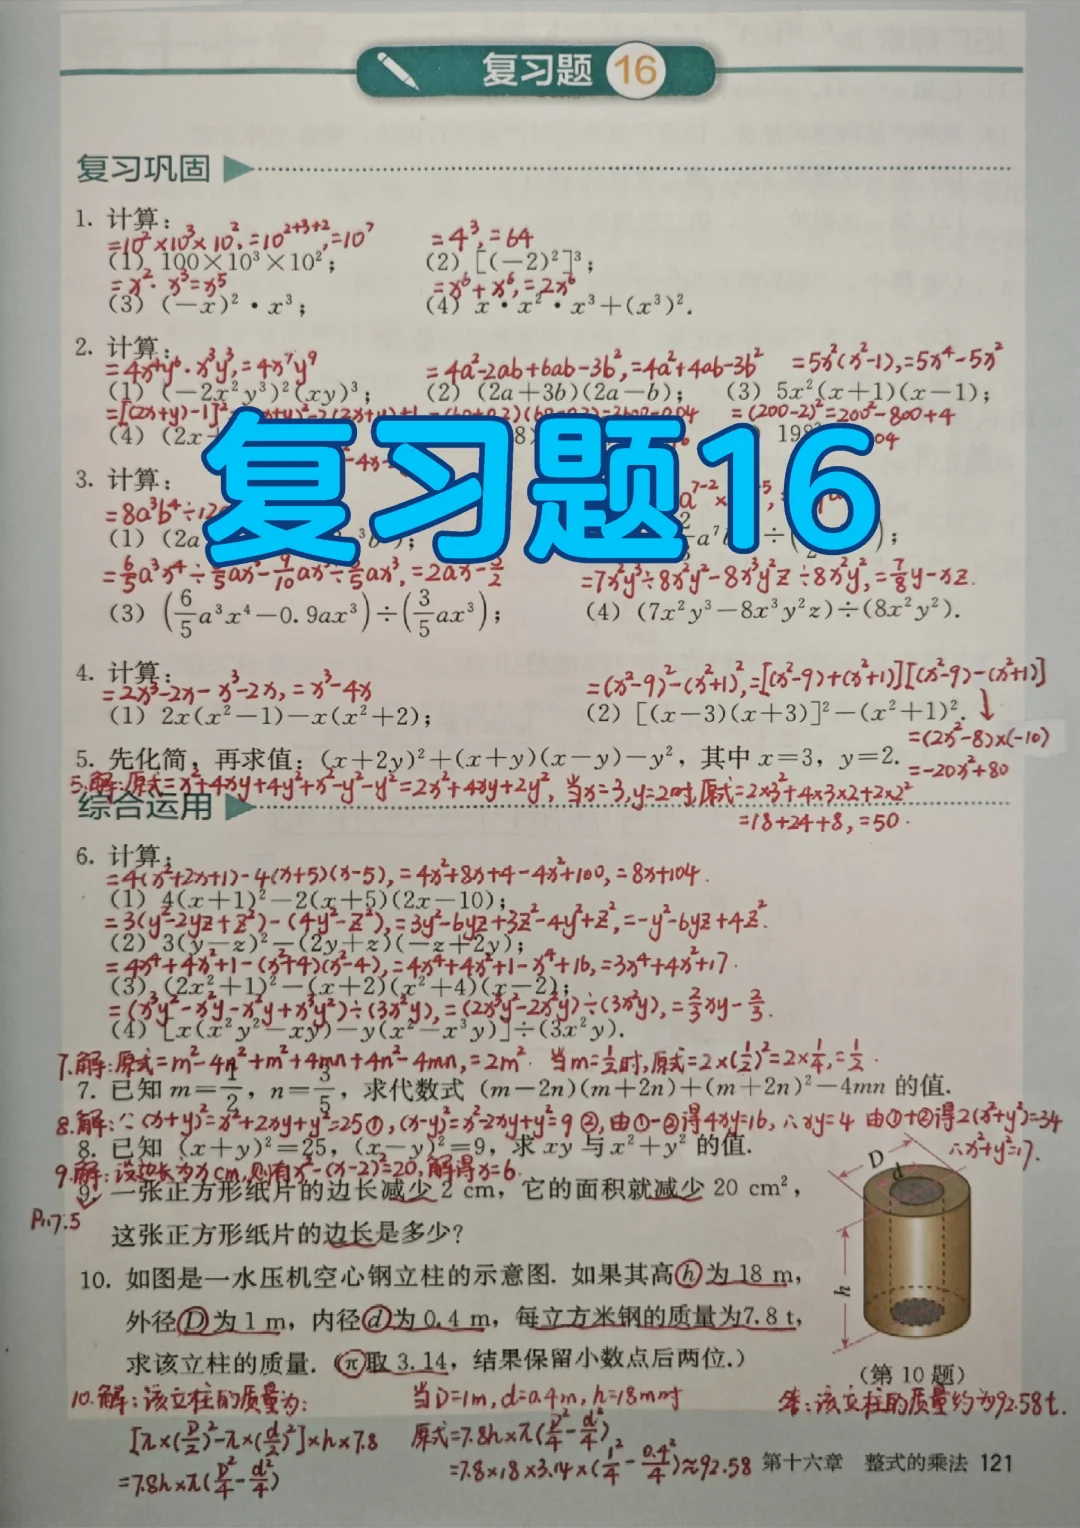 复习题 16
复习巩固
1. 计算:
=10²×10³×10², =10²⁺³⁺², =10⁷ =4³, =64
(1) 100×10³×10²; (2) [(-2)²]³;
=x²·x³=x⁵ =x⁶+x⁶, =2x⁶
(3) (-x)²·x³; (4) x·x²·x³+(x³)².
2. 计算:
=4x⁴y⁶·x³y³, =4x⁷y⁹ =4a²-2ab+6ab-3b², =4a²+4ab-3b² =5x²(x²-1), =5x⁴-5x²
(1) (-2x²y³)²(xy)³; (2) (2a+3b)(2a-b); (3) 5x²(x+1)(x-1);
=[(2x+y)-1]² =(200-2)²=200²-800+4
(4) (2x+
复习题16
3. 计算:
=8a³b⁴÷12
(1) (2a
=6/5a³x⁴÷3/5ax³-9/10ax³÷3/5ax³, =2a²x-3/2 =7x²y³÷8x²y²-8x³y²z÷8x²y², =7/8y-xz.
(3) (6/5a³x⁴-0.9ax³)÷(3/5ax³); (4) (7x²y³-8x³y²z)÷(8x²y²).
4. 计算:
=2x³-2x-x³-2x, =x³-4x =(x²-9)²-(x²+1)², =[(x²-9)+(x²+1)][(x²-9)-(x²+1)]
(1) 2x(x²-1)-x(x²+2); (2) [(x-3)(x+3)]²-(x²+1)².
=(2x²-8)×(-10)
5. 先化简,再求值: (x+2y)²+(x+y)(x-y)-y², 其中 x=3, y=2.
=-20x²+80
5.解:原式=x²+4xy+4y²+x²-y²-y²=2x²+4xy+2y², 当x=3,y=2时,原式=2×3²+4×3×2+2×2²
综合运用
=18+24+8, =50.
6. 计算:
=4(x²+2x+1)-4(x+5)(x-5), =4x²+8x+4-4x²+100, =8x+104.
(1) 4(x+1)²-2(x+5)(2x-10);
=3(y²-2yz+z²)-(4y²-z²), =3y²-6yz+3z²-4y²+z², =-y²-6yz+4z².
(2) 3(y-z)²-(2y+z)(-z+2y);
=4x⁴+4x²+1-(x²+4)(x²-4), =4x⁴+4x²+1-x⁴+16, =3x⁴+4x²+17.
(3) (2x²+1)²-(x+2)(x²+4)(x-2);
=(x³y²-x²y-x²y+x³y²)÷(3x²y), =(2x³y²-2x²y)÷(3x²y), =2/3xy-2/3.
(4) [x(x²y²-xy)-y(x²-x³y)]÷(3x²y).
7.解:原式=m²-4n²+m²+4mn+4n²-4mn, =2m². 当m=1/2时,原式=2×(1/2)²=2×1/4, =1/2.
7. 已知 m=1/2, n=3/5, 求代数式 (m-2n)(m+2n)+(m+2n)²-4mn 的值.
8.解:∵(x+y)²=x²+2xy+y²=25①, (x-y)²=x²-2xy+y²=9②, 由①-②得4xy=16, ∴xy=4 由①+②得2(x²+y²)=34
8. 已知 (x+y)²=25, (x-y)²=9, 求 xy 与 x²+y² 的值.
∴x²+y²=17.
9.解:设边长为x cm, 则有x²-(x-2)²=20, 解得x=6.
9. 一张正方形纸片的边长减少 2 cm, 它的面积就减少 20 cm²,
P117.5
这张正方形纸片的边长是多少?
10. 如图是一水压机空心钢立柱的示意图. 如果其高 h 为 18 m,
外径 D 为 1 m, 内径 d 为 0.4 m, 每立方米钢的质量为7.8 t,
求该立柱的质量. (π取 3.14, 结果保留小数点后两位.)
D
d
h
(第 10 题)
10.解:该立柱的质量为: 当D=1m, d=0.4m, h=18m时 答:该立柱的质量约为92.58t.
[π×(D/2)²-π×(d/2)²]×h×7.8 原式=7.8h×π(D²/4-d²/4)
=7.8h×π(D²/4-d²/4) =7.8×18×3.14×(1²/4-0.4²/4)≈92.58
第十六章 整式的乘法 121